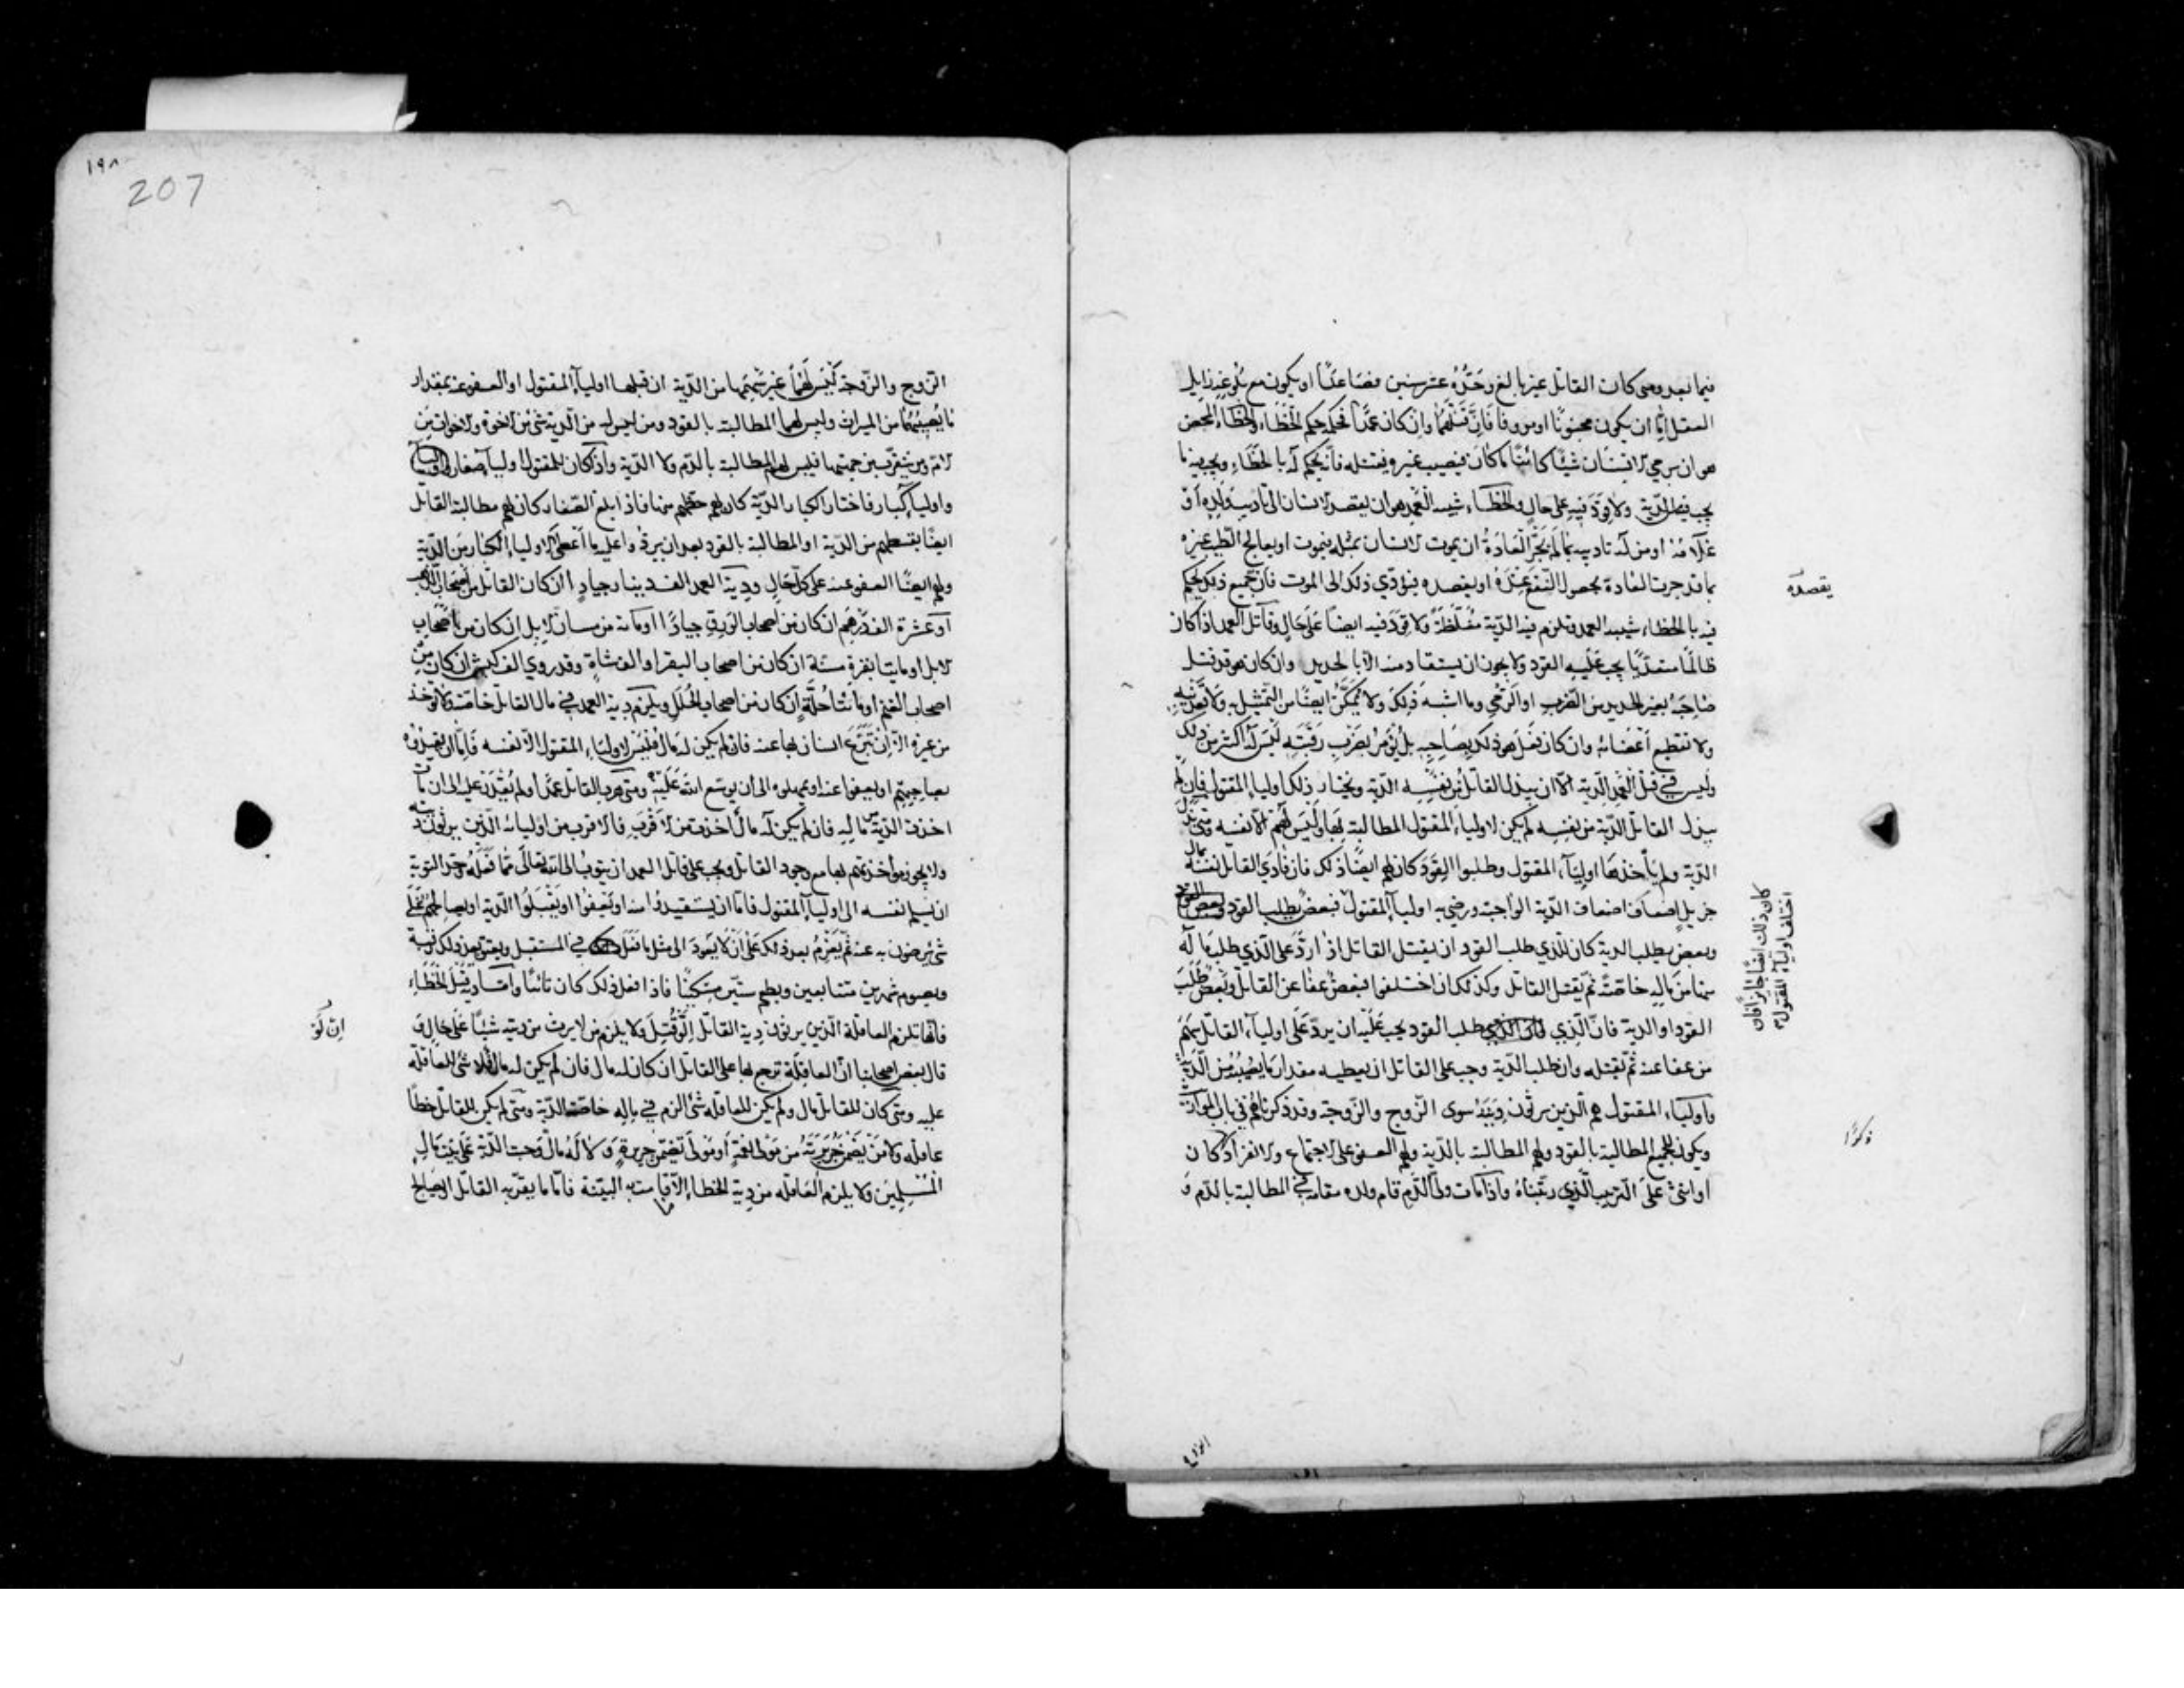 فيما بعد ومتى كان القاتل غير بالغ وحده عشر سنين فصاعدا او يكون مع بلوغه زايل
العقل اما ان يكون مجنونا او مروفا فان قتلهما وان كان عمدا فحكمه حكم الخطاء والخطاء المحض
هو ان يرمي الانسان شيئا كائنا ما كان فيصيب غيره فيقتله فانه يحكم له بالخطاء ويجب فيه ما
يجب فيه الدية ولا قود فيه على حال والخطاء شبيه العمد هو ان يقصد الانسان الى تاديب ولده او
غلامه او من له تاديبه بما لم تجر العادة ان يموت الانسان بمثله فيموت او يعالج الطبيب غيره
بما قد جرت العادة بحصول النفع عنده او يفصده فيؤدي ذلك الى الموت فان جميع ذلك يحكم
فيه بالخطاء شبيه العمد وتلزم فيه الدية مغلظة ولا قود فيه ايضا على حال وقاتل العمد اذا كان
ظالما متعديا يجب عليه القود ولا يجوز ان يستقاد منه الا بالحديد وان كان هو قد قتل
صاحبه بغير الحديد من الضرب او الرمي وما اشبه ذلك ولا يمكن ايضا من التمثيل به ولا تعذيبه
ولا تقطيع اعضائه وان كان فعل هو ذلك بصاحبه بل يؤمر بضرب رقبته ليس له اكثر من ذلك
وليس في قتل العمد الدية الا ان يبذل القاتل من نفسه الدية ويختار ذلك اولياء المقتول فان لم
يبذل القاتل الدية من نفسه لم يكن لاولياء المقتول المطالبة بها وليس لهم الا نفسه ومتى بذل
الدية ولم ياخذها اولياء المقتول وطلبوا القود كان لهم ايضا ذلك فان فادى القاتل نفسه بمال
جزيل اضعاف اضعاف الدية الواجبة ورضي به اولياء المقتول فبعض يطلب القود
وبعض يطلب الدية كان للذي طلب القود ان يقتل القاتل اذا رد على الذي طلب ما له
منها من ماله خاصة ثم يقتل القاتل وكذلك ان اختلفوا فبعض عفا عن القاتل وبعض طلب
القود او الدية فان الذي طلب القود يجب عليه ان يرد على اولياء القاتل سهم
من عفا عنه ثم يقتله وان طلب الدية وجب على القاتل ان يعطيه مقدار ما يصيبه من الدية
واولياء المقتول هم الذين يرثون ديته سوى الزوج والزوجة وقد ذكرناهم في باب المواريث
ويكون للجميع المطالبة بالقود ولهم المطالبة بالدية ولهم العفو على الاجتماع والانفراد كان
او انثى على الترتيب الذي رتبناه واذا مات ولي الدم قام ولده مقامه في المطالبة بالدم و
يقصده
كان ذلك ايضا جايزا فان
اختلف اولياء المقتول
ذكرا
الزوج
١٩٨
207
الزوج والزوجة ليس لهما غير سهمهما من الدية ان قبلها اولياء المقتول او العفو عنه بمقدار
ما يصيبهما من الميراث وليس لهما المطالبة بالقود ومن ليس له من الدية شئ من الاخوة والاخوات من
الام ومن يتقرب من جهتها فليس لهم المطالبة بالدم ولا الدية واذا كان للمقتول اولياء صغار
واولياء كبار فاختار الكبار الدية كان لهم حظهم منها فاذا بلغ الصغار كان لهم مطالبة القاتل
ايضا بقسطهم من الدية او المطالبة بالقود بعد ان يردوا عليه ما اعطى الاولياء الكبار من الدية
ولهم ايضا العفو عنه على كل حال ودية العمد الف دينار جياد ان كان القاتل من اصحاب الذهب
او عشرة الف درهم ان كان من اصحاب الورق جيادا او مائة من مسان الابل ان كان من اصحاب
الابل او مايتا بقرة مسنة ان كان من اصحاب البقر او الف شاة وقد روي الف كبش ان كان من
اصحاب الغنم او مائتا حلة ان كان من اصحاب الحلل ويلزم دية العمد في مال القاتل خاصة ولا تؤخذ
من غيره الا ان يتبرع انسان بها عنه فان لم يكن له مال فليس لاولياء المقتول الا نفسه فاما ان يقيدوه
بصاحبهم او يعفوا عنه او يمهلوه الى ان يوسع الله عليه ومتى هرب القاتل عمدا ولم يقدر عليه الى ان مات
اخذت الدية من ماله فان لم يكن له مال اخذت من الاقرب فالاقرب من اوليائه الذين يرثون ديته
ولا يجوز مؤاخذتهم بها مع وجود القاتل ويجب على قاتل العمد ان يتوب الى الله تعالى مما فعله وحد التوبة
ان يسلم نفسه الى اولياء المقتول فاما ان يستقيدوا منه او يعفوا او يقبلوا الدية او يصالحهم على
شئ يرضون به عنه ثم يعزم بعد ذلك على ان لا يعود الى مثل ما فعل في المستقبل ويعتق بعد ذلك رقبة
ويصوم شهرين متتابعين ويطعم ستين مسكينا فاذا فعل ذلك كان تائبا واما دية قتل الخطاء
فانها تلزم العاقلة الذين يرثون دية القاتل قتل ولا يلزم من لا يرث من ديته شيئا على حال و
قال بعض اصحابنا ان العاقلة ترجع بها على القاتل ان كان له مال فان لم يكن له مال فلا شئ للعاقلة
عليه ومتى كان للقاتل مال ولم يكن للعاقلة شئ الزم في ماله خاصة الدية ومتى لم يكن للقاتل خطا
عاقلة ولا من يضمن جريرته من مولى نعمة او مولى تضمن جريرة ولا له مال وجبت الدية على بيت مال
المسلمين ولا يلزم العاقلة من دية الخطاء الا ما قامت به البينة فاما ما يقر به القاتل او يصالح
ان لو